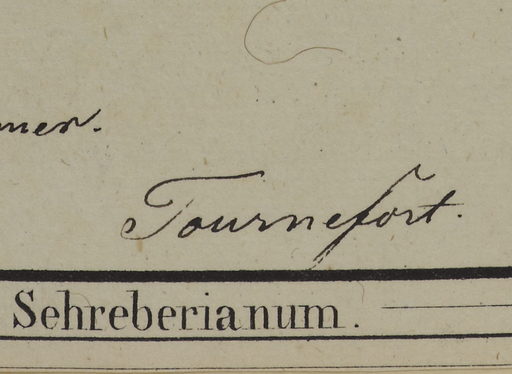 Tournefort.
Sehreberianum.